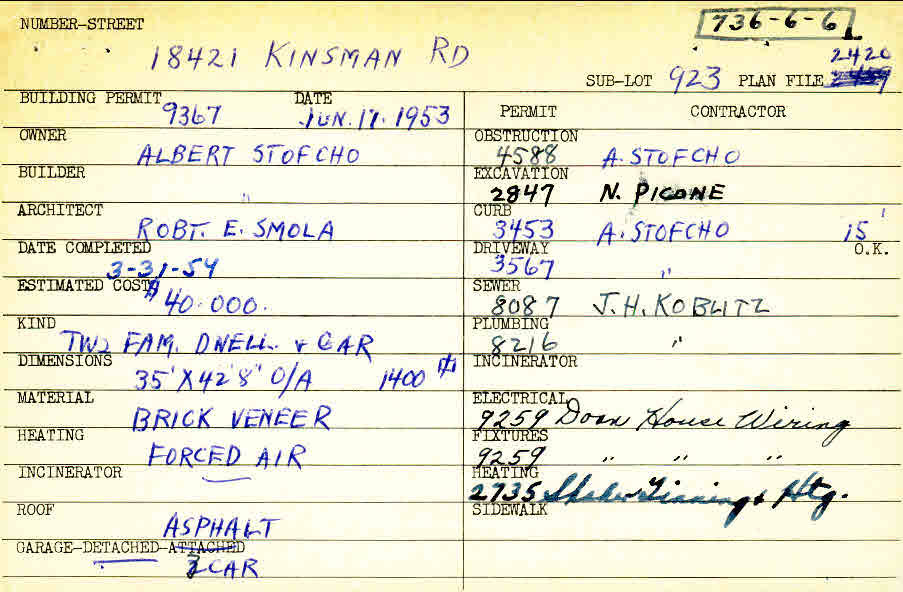 NUMBER-STREET
736-6-6
18421 KINSMAN RD
2420
SUB-LOT 923 PLAN FILE 2459
BUILDING PERMIT 9367 DATE JUN. 17. 1953
PERMIT CONTRACTOR
OWNER ALBERT STOFCHO
OBSTRUCTION 4588 A. STOFCHO
BUILDER "
EXCAVATION 2847 N. PICONE
ARCHITECT ROBT. E. SMOLA
CURB 3453 A. STOFCHO 15'
DATE COMPLETED 3-31-54
DRIVEWAY 3567 " O.K.
ESTIMATED COST $40.000.
SEWER 8087 J.H. KOBLITZ
KIND TWO FAM. DWELL. & GAR
PLUMBING 8216 "
DIMENSIONS 35' X 42'8" O/A 1400
INCINERATOR
MATERIAL BRICK VENEER
ELECTRICAL 9259 Doan House Wiring
HEATING FORCED AIR
FIXTURES 9259 " " "
INCINERATOR
HEATING 2735 Shaker Tinning & Htg.
ROOF ASPHALT
SIDEWALK
GARAGE-DETACHED-ATTACHED
CAR